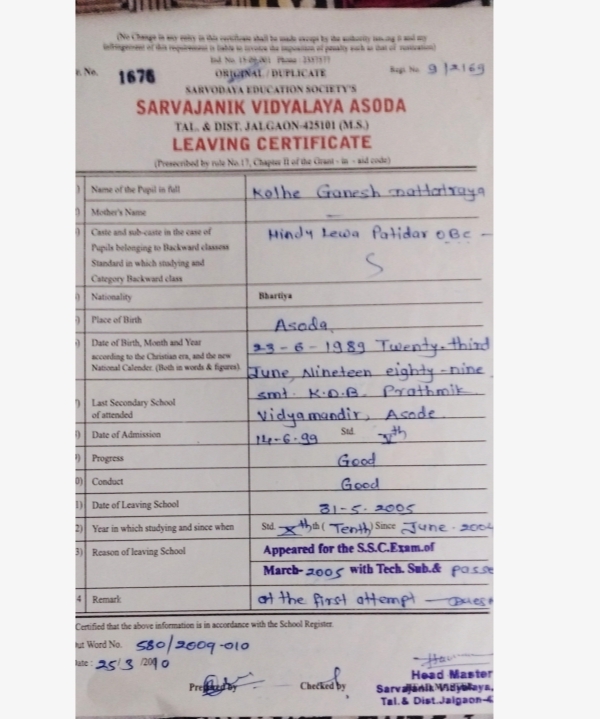 (No Change in any entry in this certificate shall be made except by the authority issuing it and any
infringement of this requirement is liable to involve the imposition of penalty such as that of rustication)
e. No. 1676 ORIGINAL / DUPLICATE Regi. No 9/2169
SARVODAYA EDUCATION SOCIETY'S
SARVAJANIK VIDYALAYA ASODA
TAL. & DIST. JALGAON-425101 (M.S.)
LEAVING CERTIFICATE
(Prescribed by rule No.17, Chapter II of the Grant - in - aid code)
Name of the Pupil in full Kolhe Ganesh Dattatraya
Mother's Name —
Caste and sub-caste in the case of Hindu Lewa Patidar OBC -
Pupils belonging to Backward classess
Standard in which studying and
Category Backward class
Nationality Bhartiya
Place of Birth Asoda
Date of Birth, Month and Year 23-6-1989 Twenty-third
according to the Christian era, and the new
National Calender. (Both in words & figures). June, Nineteen eighty-nine
Last Secondary School smt. K.D.B. Prathmik
of attended Vidyamandir, Asode
Date of Admission 14-6-99 Std. Vth
Progress Good
0) Conduct Good
1) Date of Leaving School 31-5-2005
2) Year in which studying and since when Std. Xth th ( Tenth ) Since June - 2004
3) Reason of leaving School Appeared for the S.S.C.Exam.of
March- 2005 with Tech. Sub.& passe
4 Remark at the first attempt —
Certified that the above information is in accordance with the School Register
ut Word No. 580/2009-010
ate: 25/3 /2010
Prepared by Checked by
Head Master
Sarvajanik Vidyalaya,
Tal.& Dist.Jalgaon-4